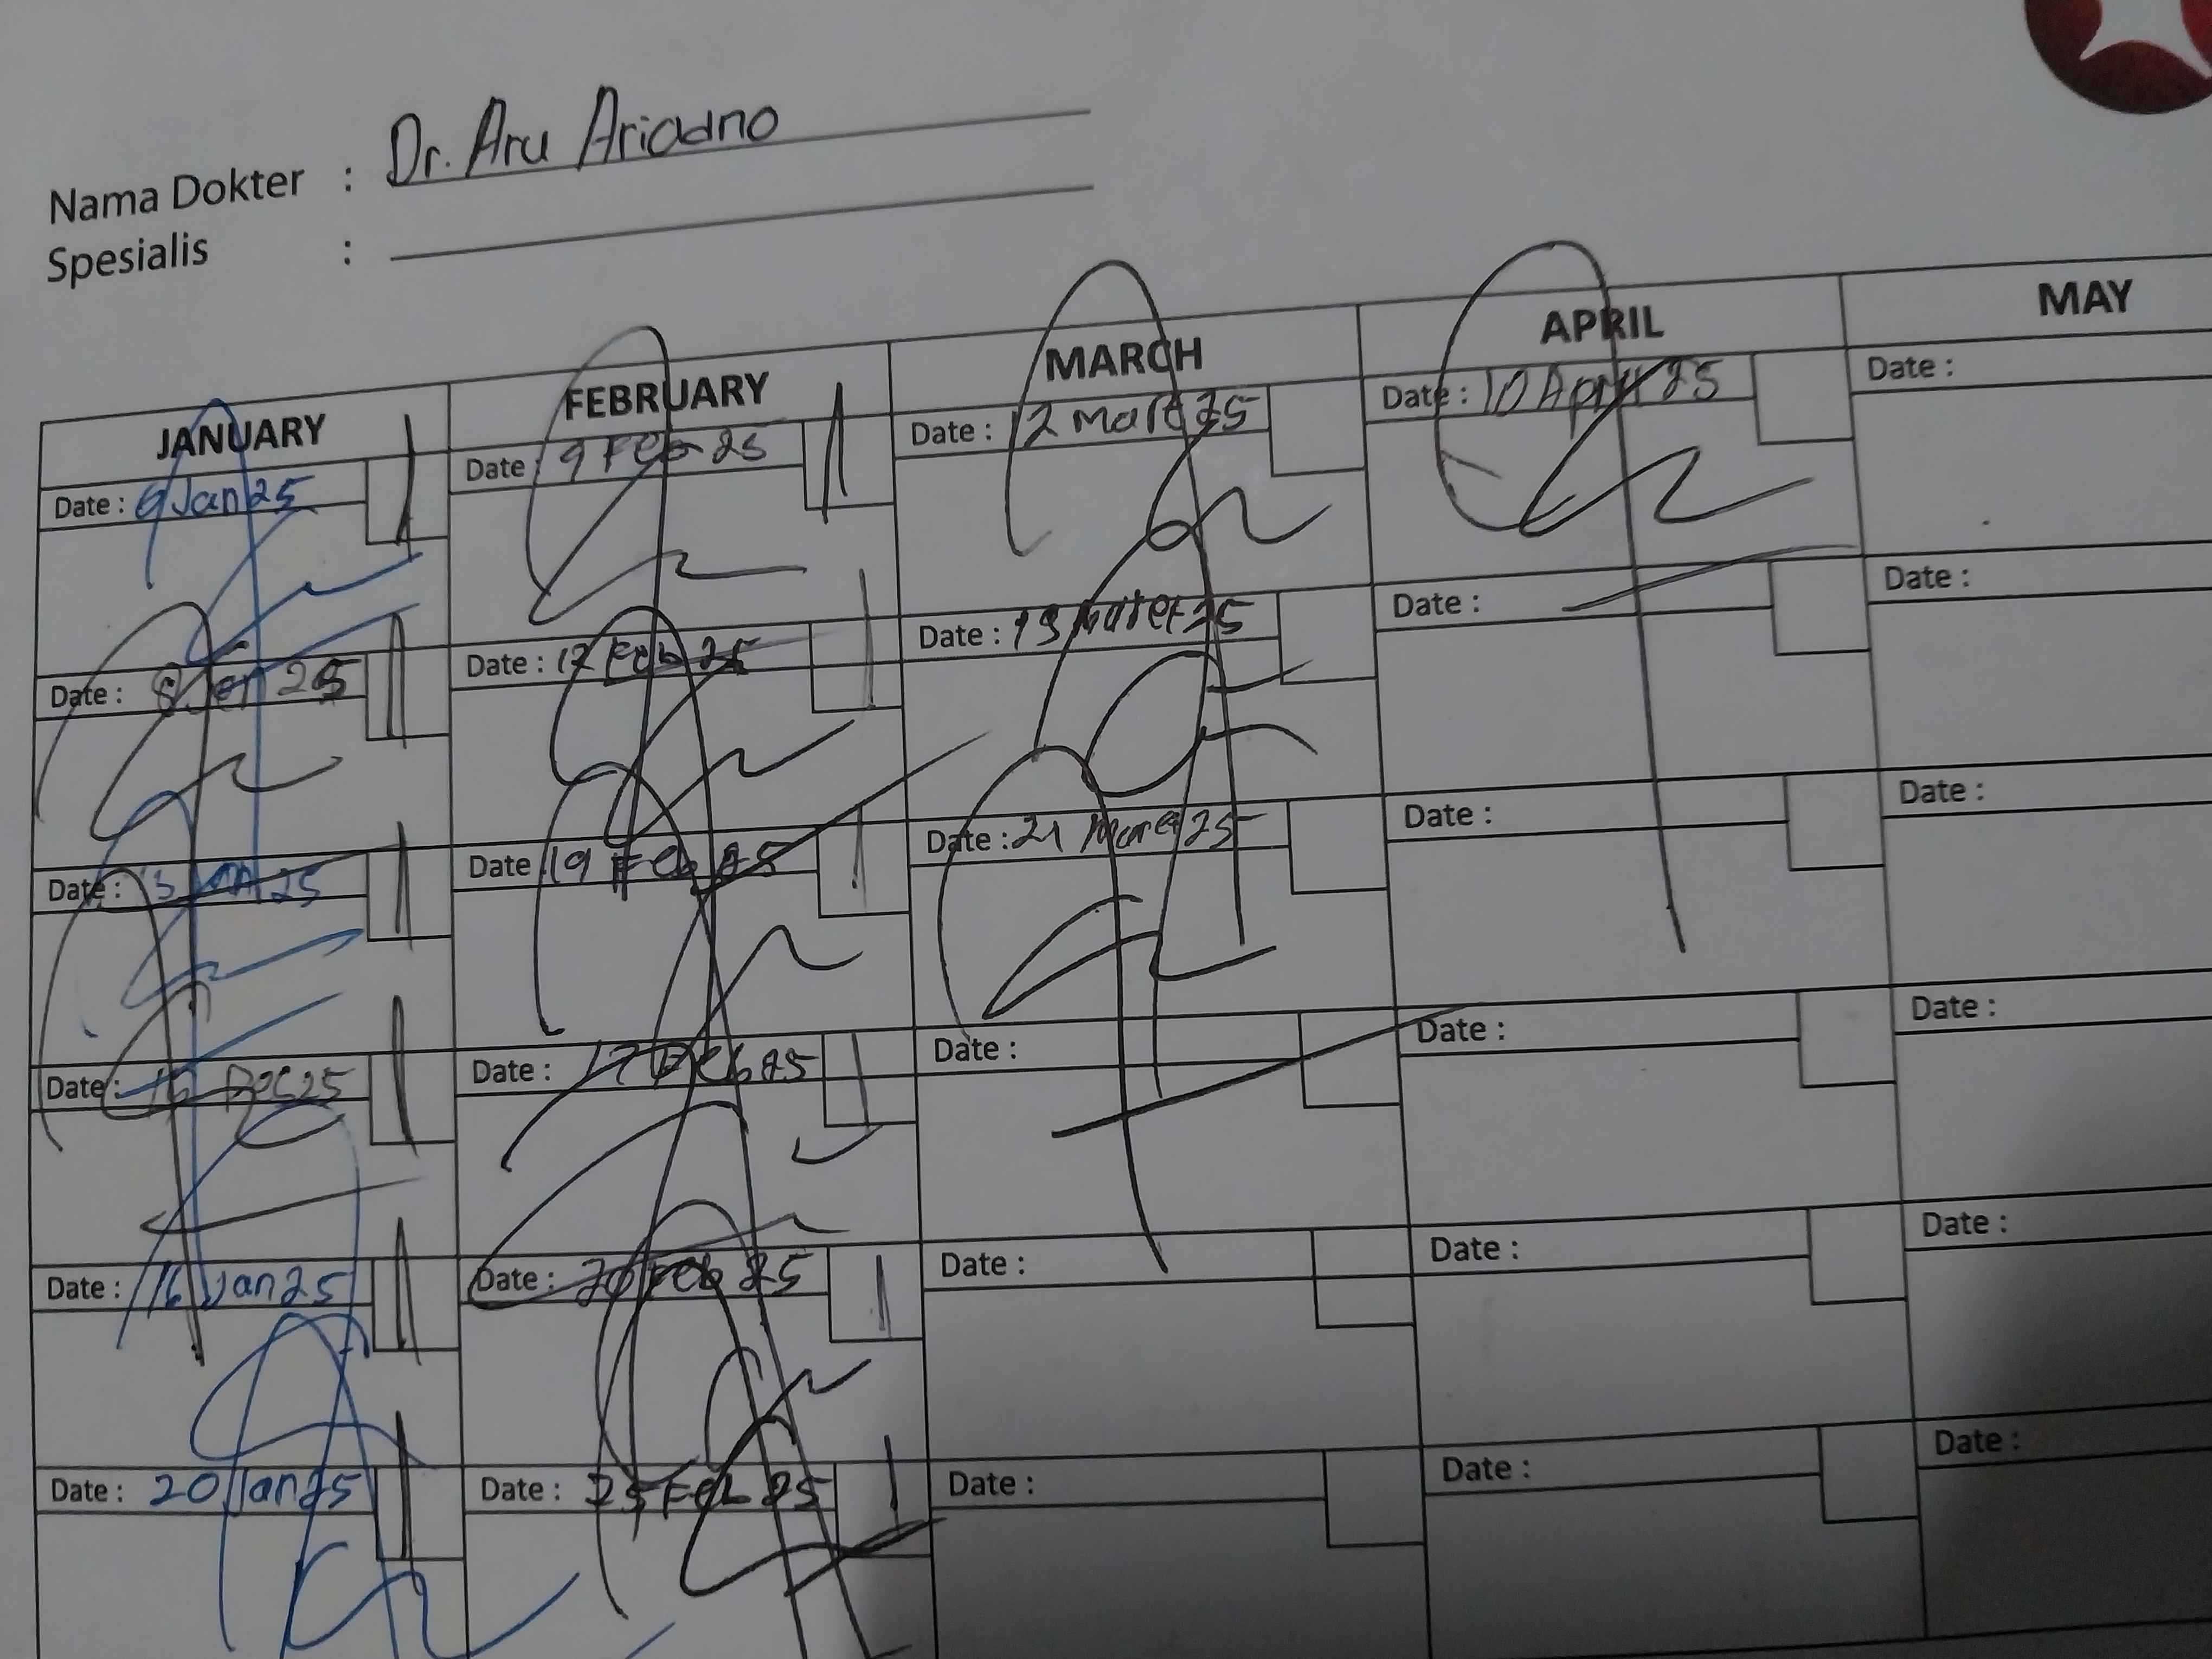 Nama Dokter : Dr. Aru Ariadno
Spesialis :
JANUARY FEBRUARY MARCH APRIL MAY
Date : 9 Jan 25 Date : 9 Feb 25 Date : 12 Maret 25 Date : 10 April 25 Date :
Date : 8 Jan 25 Date : 12 Feb 25 Date : 19 Maret 25 Date : Date :
Date : 13 Jan 25 Date : 19 Feb 25 Date : 21 Maret 25 Date : Date :
Date : 16 25 Date : 17 Feb 25 Date : Date : Date :
Date : 16 Jan 25 Date : 20 Feb 25 Date : Date : Date :
Date : 20 Jan 25 Date : 25 Feb 25 Date : Date : Date :